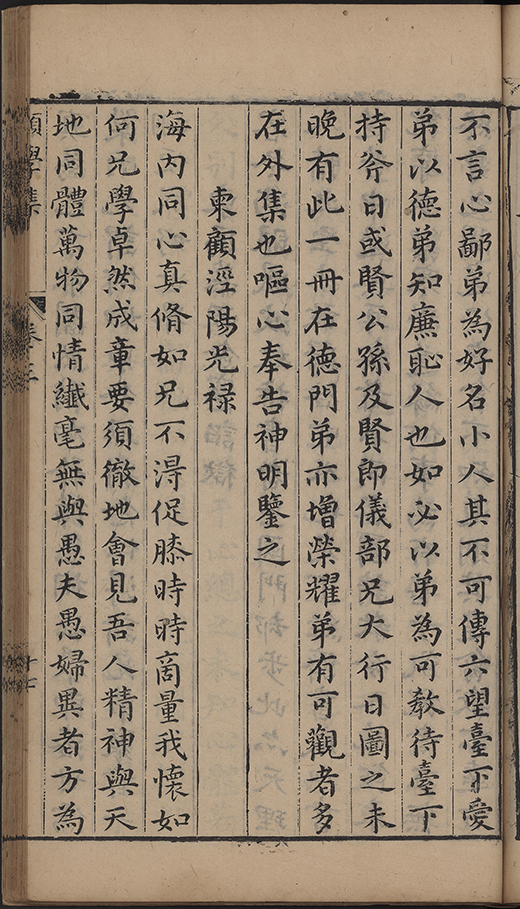 不言心鄙弟為好名小人其不可傳六望臺下愛
弟以德弟知廉恥人也如必以弟為可教待臺下
持斧日或賢公孫及賢郎儀部兄大行日圖之未
晚有此一冊在德門弟亦增榮耀弟有可觀者多
在外集也嘔心奉告神明鑒之
柬顧涇陽光祿
海內同心真脩如兄不淂促膝時時商量我懷如
何兄學卓然成章要須徹地會見吾人精神與天
地同體萬物同情纖毫無與愚夫愚婦異者方為
願學集
卷三
十七